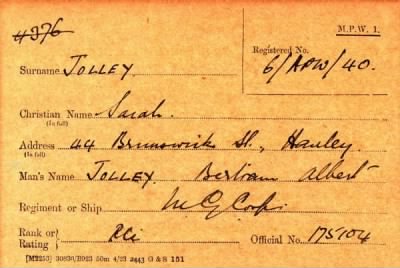 4376
M.P.W. 1.
Registered No.
6/APW/40.
Surname JOLLEY
Christian Name Sarah.
(In full)
Address 44 Brunswick St., Hanley.
(In full)
Man's Name JOLLEY. Bertram Albert
Regiment or Ship M G Corps
Rank or Rating Pte Official No. 175104
[M2253] 30830/B923 50m 4/23 2443 G & S 151